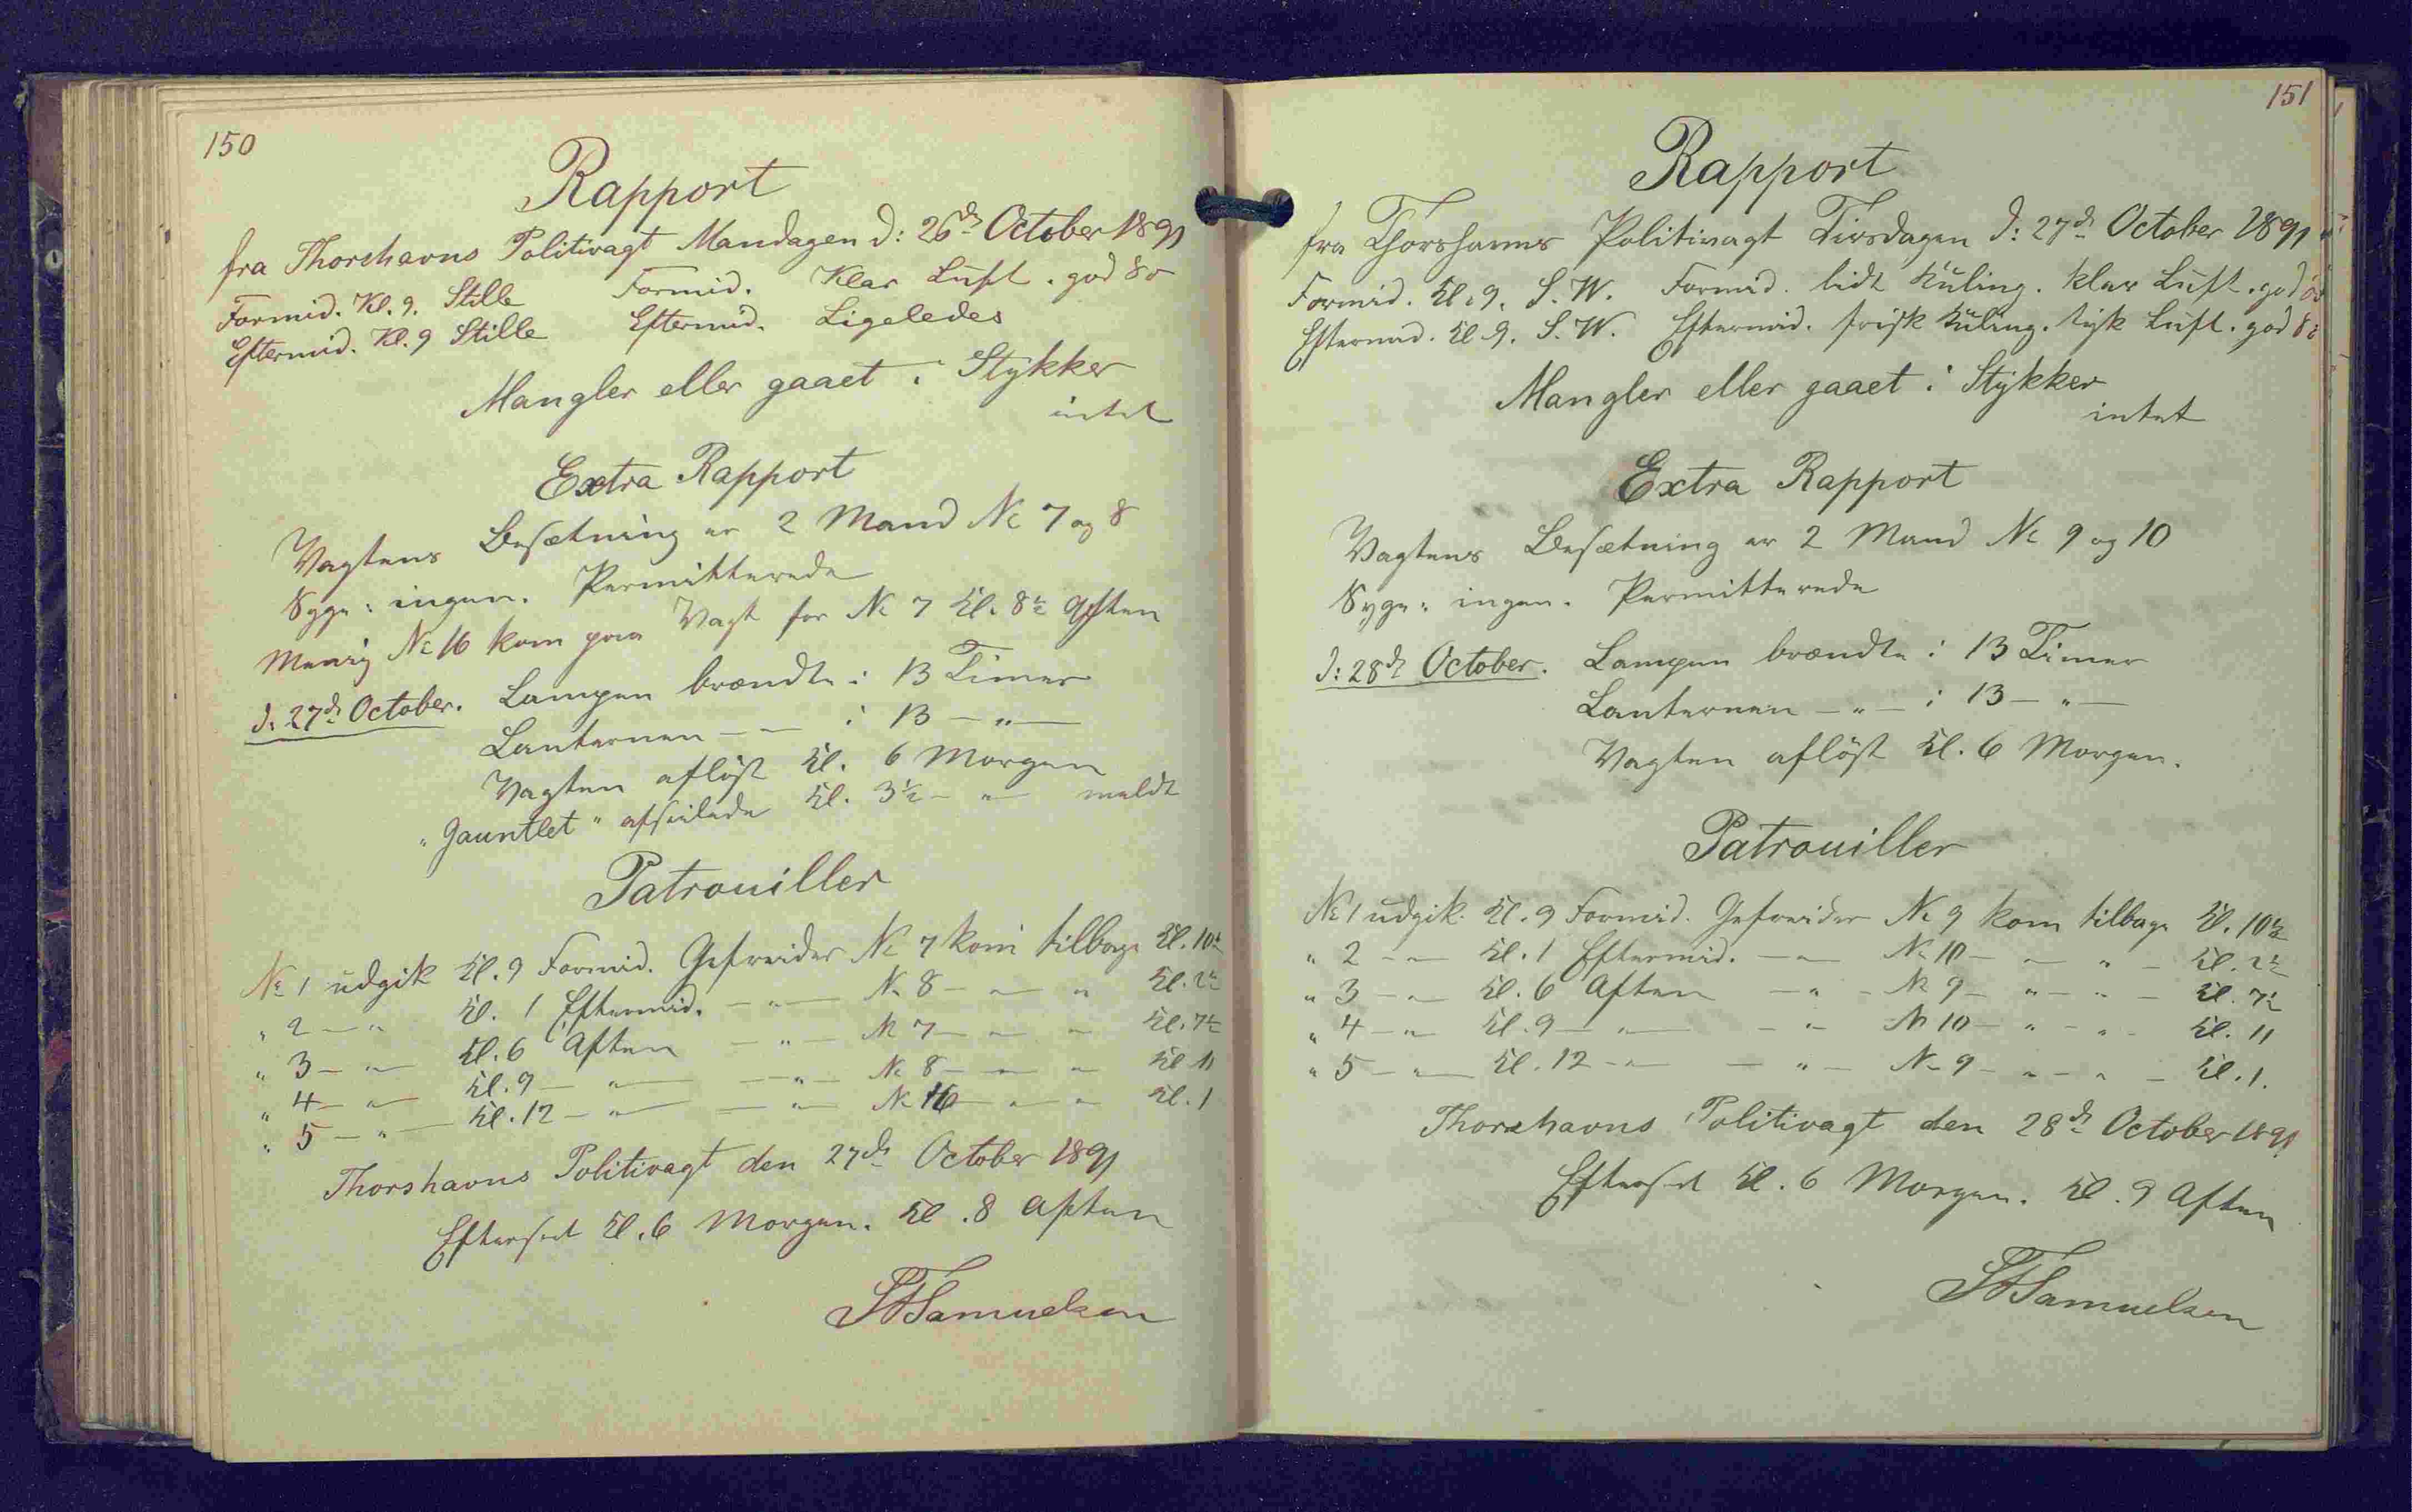 150
Rapport
fra Thorshavns Politivagt Mandagen d: 26de October 1891
Formid. Kl. 9. Stille Formid. Klar Luft. god Sø
Eftermid. Kl. 9 Stille Eftermid. Ligeledes
Mangler eller gaaet i Stykker
intet
Extra Rapport
Vagtens Besætning er 2 Mand No 7 og 8
Syge: ingen. Permitterede
Menig No 16 kom paa Vagt for No 7 Kl. 8½ Aften
d: 27de October. Lampen brændte i 13 Timer
Lanternen - - i 13 - " -
Vagten afløst Kl. 6 Morgen
"Gauntlet" afseilede Kl. 3½ - " - meldt
Patrouiller
No 1 udgik Kl. 9 Formid. Gefreider No 7 kom tilbage Kl. 10½
" 2 - " Kl. 1 Eftermid. - " - No 8 - " - " Kl. 2½
" 3 - " - Kl. 6 Aften - " - No 7 - " - " Kl. 7½
" 4 - " - Kl. 9 - " - - " - No 8 - " - " Kl 11
" 5 - " - Kl. 12 - " - - " - No 16 - " - " Kl. 1
Thorshavns Politivagt den 27de October 1891
Efterset Kl. 6 Morgen. Kl. 8 Aften
Samuelsen
151
Rapport
fra Thorshavns Politivagt Tirsdagen d: 27de October 1891
Formid. Kl. 9. S. W. Formid. lidt Kuling. klar Luft. god
Eftermid. Kl 9. S. W. Eftermid. frisk Kuling. tyk Luft. god
Mangler eller gaaet i Stykker
intet
Extra Rapport
Vagtens Besætning er 2 Mand No 9 og 10
Syge: ingen. Permitterede
d: 28de October. Lampen brændte i 13 Timer
Lanternen - " - i 13 - " -
Vagten afløst Kl. 6 Morgen.
Patrouiller
No 1 udgik Kl. 9 Formid. Gefreider No 9 kom tilbage Kl. 10½
" 2 - " - Kl. 1 Eftermid. - " - No 10 - " - " - Kl. 2½
" 3 - " - Kl. 6 Aften - " - No 9 - " - " - Kl. 7½
" 4 - " - Kl. 9 - " - - " - No 10 - " - " - Kl. 11
" 5 - " - Kl. 12 - " - - " - No 9 - " - " - Kl. 1.
Thorshavns Politivagt den 28de October 1891
Efterset Kl. 6 Morgen. Kl. 9 Aften
Samuelsen